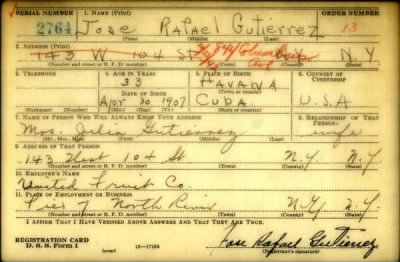 SERIAL NUMBER 1. NAME (Print) ORDER NUMBER
2764 Jose Rafael Gutierrez 13
(First) (Middle) (Last)
2. ADDRESS (Print)
143 W 104 St N.Y. N Y
(Number and street or R. F. D. number) (Town) (County) (State)
3. TELEPHONE 4. AGE IN YEARS 5. PLACE OF BIRTH 6. COUNTRY OF CITIZENSHIP
33 HAVANA
DATE OF BIRTH (Town or county)
Apr 30 1907 CUBA. U.S.A
(Exchange) (No.) (Mo.) (Day) (Yr.) (State or country)
7. NAME OF PERSON WHO WILL ALWAYS KNOW YOUR ADDRESS 8. RELATIONSHIP OF THAT PERSON
Mrs. Julia Gutierrez wife
(Mr., Mrs., Miss) (First) (Middle) (Last)
9. ADDRESS OF THAT PERSON
143 West 104 St N.Y. N.Y.
(Number and street or R. F. D. number) (Town) (County) (State)
10. EMPLOYER'S NAME
United Fruit Co
11. PLACE OF EMPLOYMENT OR BUSINESS
Pier 7 North River N.Y. N.Y.
(Number and street or R. F. D. number) (Town) (County) (State)
I AFFIRM THAT I HAVE VERIFIED ABOVE ANSWERS AND THAT THEY ARE TRUE.
REGISTRATION CARD
D. S. S. Form 1 (over) 16—17105 Jose Rafael Gutierrez
(Registrant's signature)